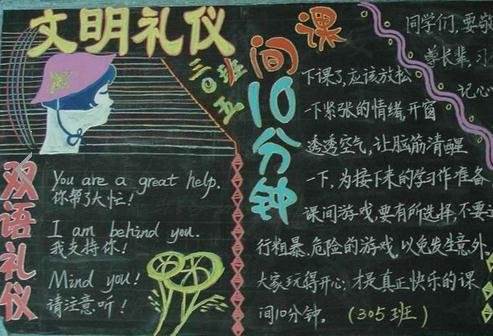 文明礼仪
三〇五班
双语礼仪
You are a great help.
你帮了大忙!
I am behind you.
我支持你!
Mind you!
请注意听!
课间10分钟
下课了,应该放松
一下紧张的情绪,开窗
透透空气,让脑筋清醒
一下,为接下来的学习作准备
课间游戏,要有所选择,不要
行粗暴、危险的游戏,以免发生意外
大家玩得开心,才是真正快乐的课
间10分钟。(305班)
同学们,要
尊长辈,习
记心